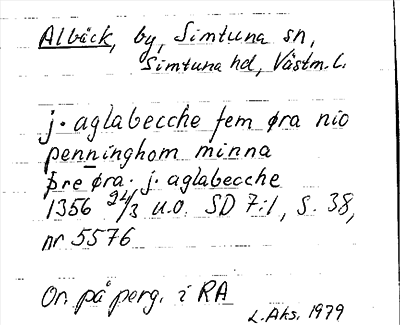 Albäck, by, Simtuna sn,
Simtuna hd, Västm. l.
j. aglabecche fem øra nio
penninghom minna
þre øra. j. aglabecche
1356 24/3 u.o. SD 7:1, s. 38,
nr 5576
Or. på perg. i RA
L. Aks. 1979